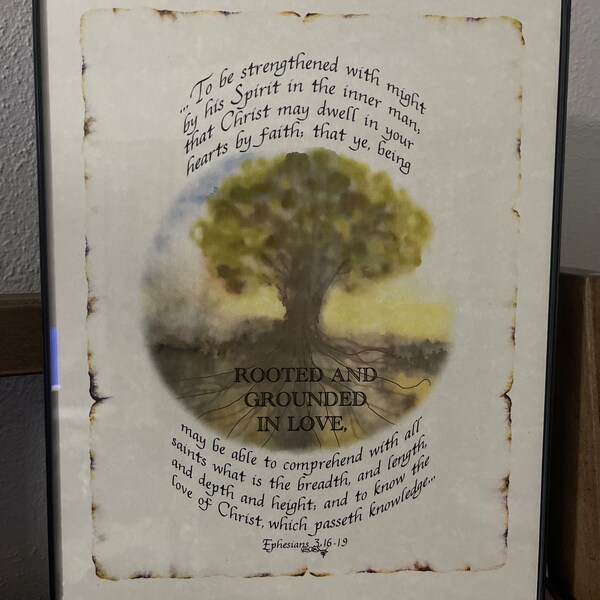 ...To be strengthened with might
by his Spirit in the inner man;
that Christ may dwell in your
hearts by faith; that ye, being
ROOTED AND
GROUNDED
IN LOVE,
may be able to comprehend with all
saints what is the breadth, and length,
and depth and height; and to know the
love of Christ, which passeth knowledge...
Ephesians 3:16-19